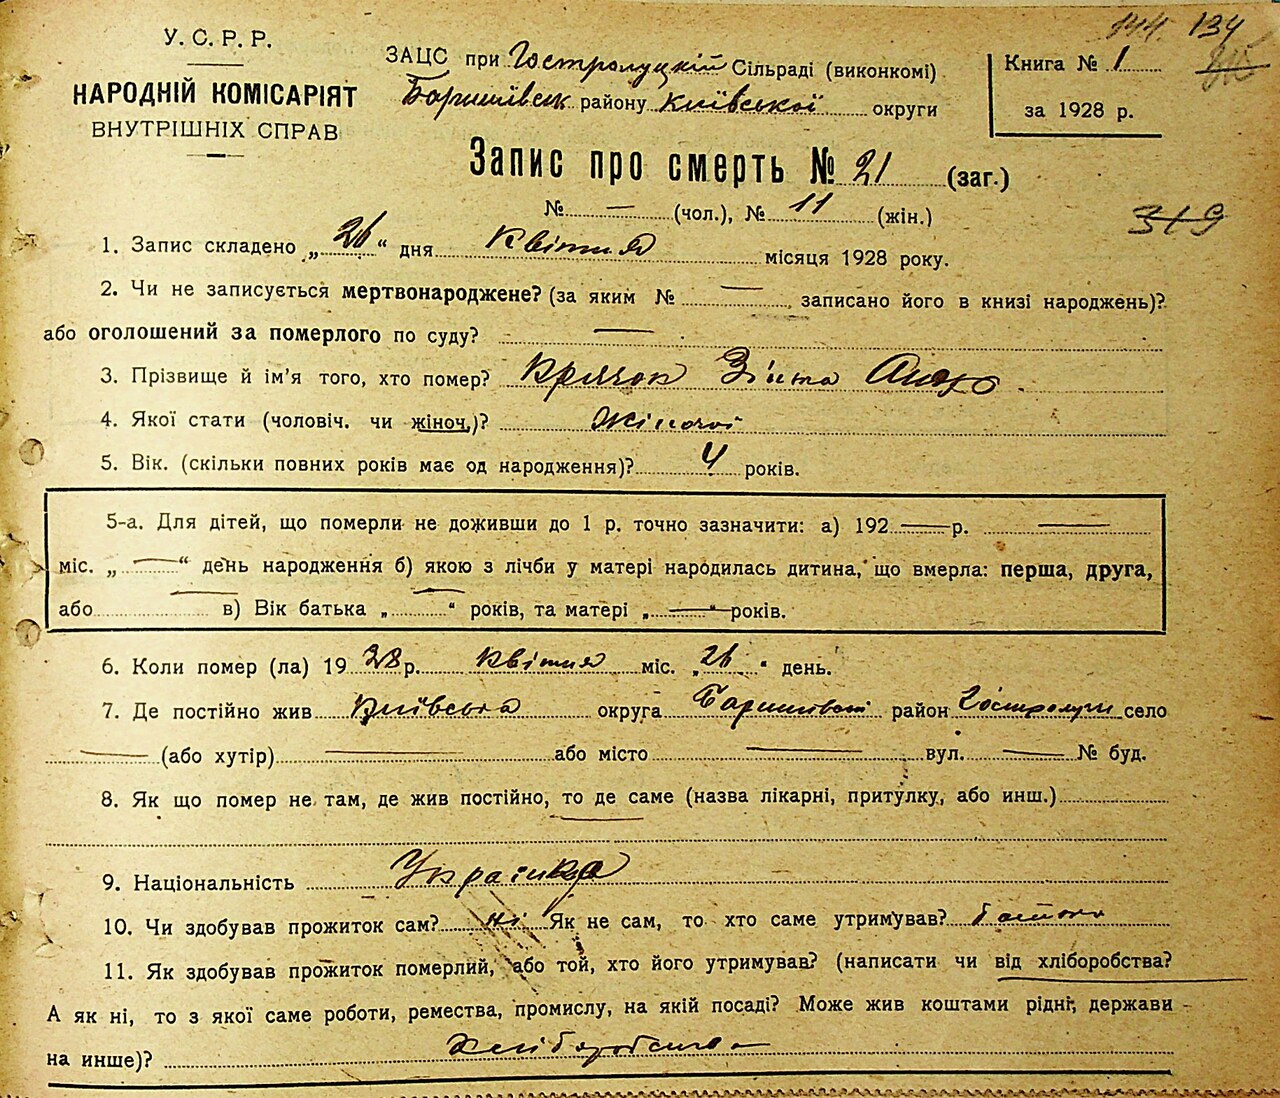 144. 134
У. С. Р. Р.
НАРОДНІЙ КОМІСАРІЯТ
ВНУТРІШНІХ СПРАВ
ЗАЦС при Гостролуцкій Сільраді (виконкомі)
Баришівськ району Київської округи
Книга № 1
за 1928 р.
Запис про смерть № 21 (заг.)
№ — (чол.), № 11 (жін.)
319
1. Запис складено „26“ дня Квітня місяця 1928 року.
2. Чи не записується мертвонароджене? (за яким № — записано його в книзі народжень)?
або оголошений за померлого по суду? —
3. Прізвище й ім’я того, хто помер? Крячок Зінта
4. Якої стати (чоловіч. чи жіноч.)? Жіночої
5. Вік. (скільки повних років має од народження)? 4 років.
5-а. Для дітей, що померли не доживши до 1 р. точно зазначити: а) 192 — р. —
міс. „ — “ день народження б) якою з лічби у матері народилась дитина, що вмерла: перша, друга,
або — в) Вік батька „ — “ років, та матері „ — “ років.
6. Коли помер (ла) 1928 р. Квітня міс. „26“ день.
7. Де постійно жив Київська округа Баришівськ район Гостролуччя село
— (або хутір) — або місто — вул. — № буд.
8. Як що помер не там, де жив постійно, то де саме (назва лікарні, притулку, або инш.)
9. Національність Українка
10. Чи здобував прожиток сам? ні Як не сам, то хто саме утримував? батько
11. Як здобував прожиток померлий, або той, хто його утримував? (написати чи від хліборобства?
А як ні, то з якої саме роботи, ремества, промислу, на якій посаді? Може жив коштами рідні, держави -
на инше)? Хліборобства